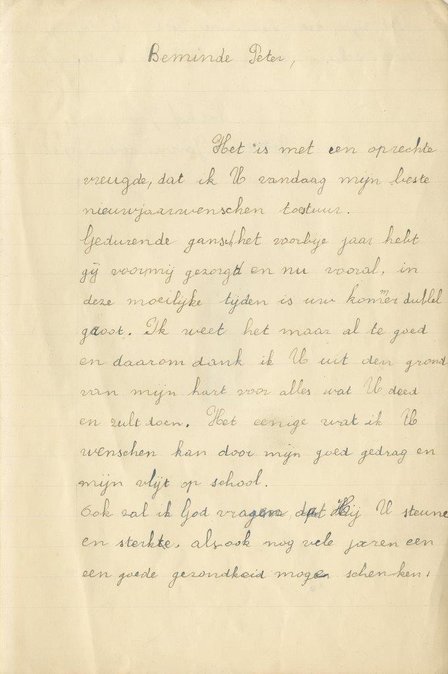 Beminde Peter,
Het is met een oprechte
vreugde, dat ik U vandaag mijn beste
nieuwjaarwenschen toestuur.
Gedurende gansch het voorbije jaar hebt
gij voor mij gezorgd en nu vooral, in
deze moeilijke tijden is uw kommer dubbel
groot. Ik weet het maar al te goed
en daarom dank ik U uit den grond
van mijn hart voor alles wat U deed
en zult doen. Het eenige wat ik U
wenschen kan door mijn goed gedrag en
mijn vlijt op school.
Ook zal ik God vragen dat Hij U steune
en sterkte, alsook nog vele jaren een
een goede gezondheid mogen schenken.